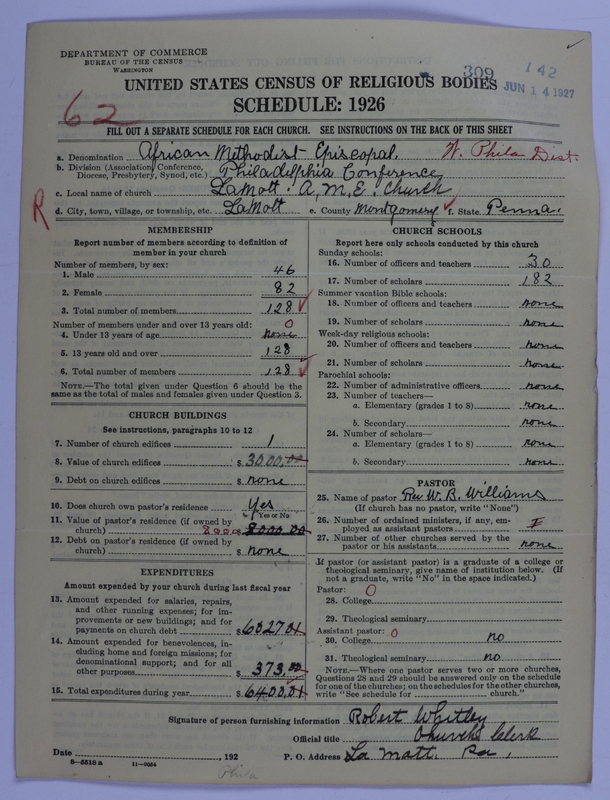 DEPARTMENT OF COMMERCE
BUREAU OF THE CENSUS
WASHINGTON
309 142
JUN 14 1927
UNITED STATES CENSUS OF RELIGIOUS BODIES
SCHEDULE: 1926
62
FILL OUT A SEPARATE SCHEDULE FOR EACH CHURCH. SEE INSTRUCTIONS ON THE BACK OF THIS SHEET
a. Denomination African Methodist Episcopal. W. Phila Dist.
b. Division (Association, Conference, Diocese, Presbytery, Synod, etc.) Philadelphia Conference
c. Local name of church LaMott. A. M. E. Church
R
d. City, town, village, or township, etc. LaMott e. County Montgomery f. State Penna.
MEMBERSHIP
Report number of members according to definition of
member in your church
Number of members, by sex:
1. Male 46
2. Female 82
3. Total number of members 128
Number of members under and over 13 years old: 0
4. Under 13 years of age none
5. 13 years old and over 128
6. Total number of members 128
NOTE.—The total given under Question 6 should be
same as the total of males and females given under Question 3.
CHURCH BUILDINGS
See instructions, paragraphs 10 to 12
7. Number of church edifices 1
8. Value of church edifices $ 3000.00
9. Debt on church edifices $ none
10. Does church own pastor's residence Yes
Yes or No
11. Value of pastor's residence (if owned by
church) 8000 $ 8000.00
12. Debt on pastor's residence (if owned by
church) $ none
EXPENDITURES
Amount expended by your church during last fiscal year
13. Amount expended for salaries, repairs,
and other running expenses; for im-
provements or new buildings; and for
payments on church debt $ 6027.01
14. Amount expended for benevolences, in-
cluding home and foreign missions; for
denominational support; and for all
other purposes $ 373.00
15. Total expenditures during year $ 6400.01
CHURCH SCHOOLS
Report here only schools conducted by this church
Sunday schools:
16. Number of officers and teachers 30
17. Number of scholars 182
Summer vacation Bible schools:
18. Number of officers and teachers none
19. Number of scholars none
Week-day religious schools:
20. Number of officers and teachers none
21. Number of scholars none
Parochial schools:
22. Number of administrative officers none
23. Number of teachers—
a. Elementary (grades 1 to 8) none
b. Secondary none
24. Number of scholars—
a. Elementary (grades 1 to 8) none
b. Secondary none
PASTOR
25. Name of pastor Rev W. R. Williams
(If church has no pastor, write "None")
26. Number of ordained ministers, if any, em-
ployed as assistant pastors
27. Number of other churches served by the
pastor or his assistants none
If pastor (or assistant pastor) is a graduate of a college or
theological seminary, give name of institution below. (If
not a graduate, write "No" in the space indicated.)
Pastor: 0
28. College
29. Theological seminary
Assistant pastor: 0
30. College no
31. Theological seminary no
NOTE.—Where one pastor serves two or more churches,
Questions 28 and 29 should be answered only on the schedule
for one of the churches; on the schedules for the other churches,
write "See schedule for church."
Signature of person furnishing information Robert Whitley
Official title Church Clerk
Date , 192 P. O. Address La Mott. Pa.
8—5510 a 11—9064
Phila